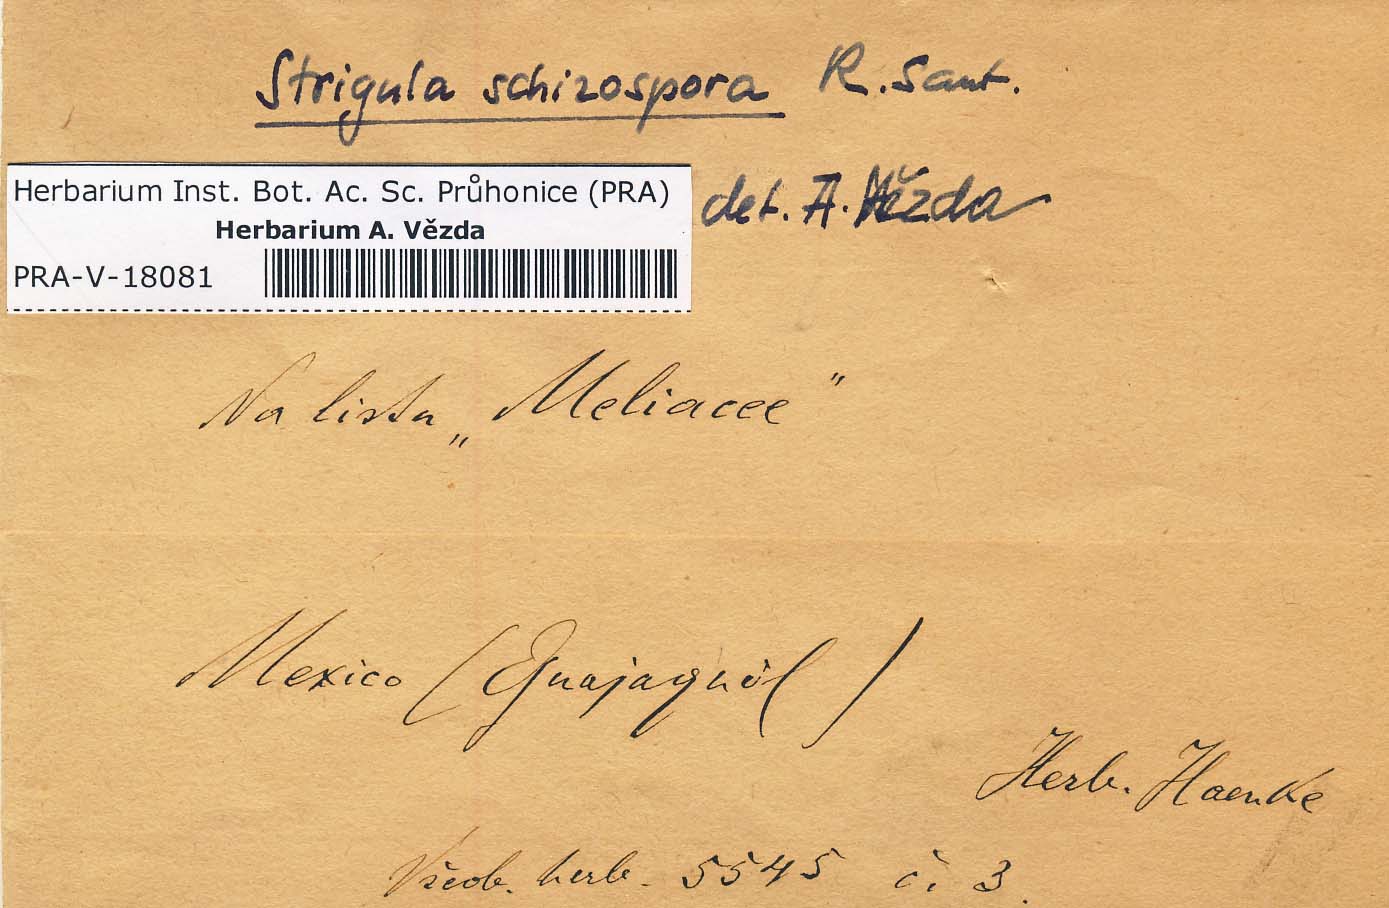 Strigula schizospora R. Sant.
Herbarium Inst. Bot. Ac. Sc. Průhonice (PRA)
Herbarium A. Vězda
PRA-V-18081
det. A. Vězda
Na listu „Meliacee"
Mexico (
Herb. Haenke
Všeob. herb. 5545 č. 3.